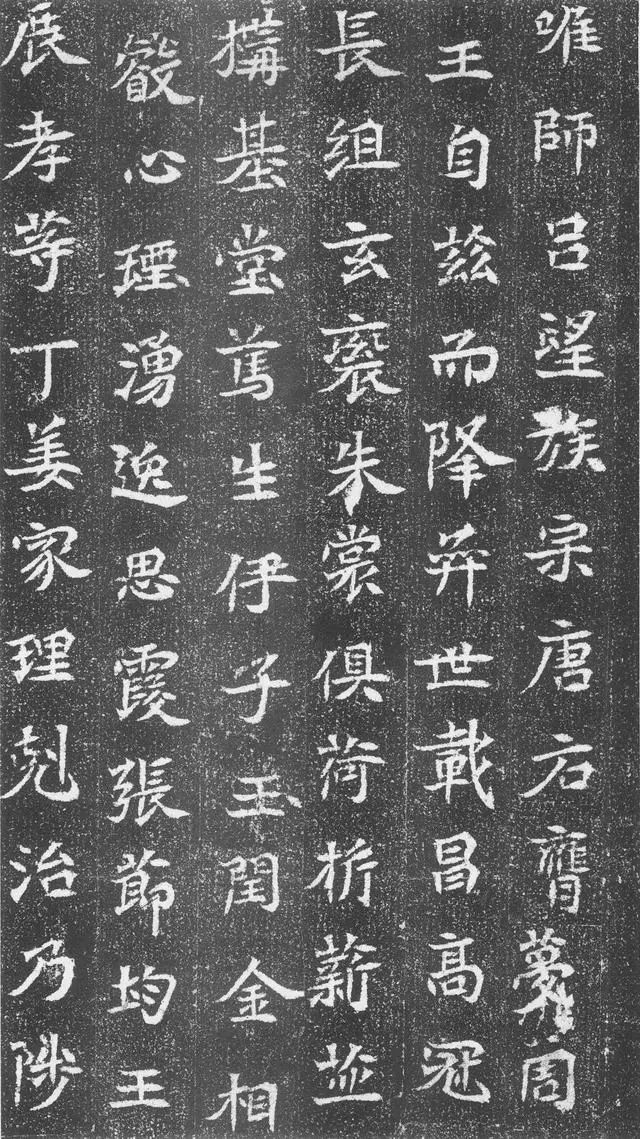 唯師呂望族宗唐右膺夢周
王自茲而降弈世載昌高冠
長組玄衮朱裳俱荷析薪並
搆基堂篤生伊子玉閏金相
叡心煙湧逸思霞張節均王
展孝等丁姜家理剋治乃陟